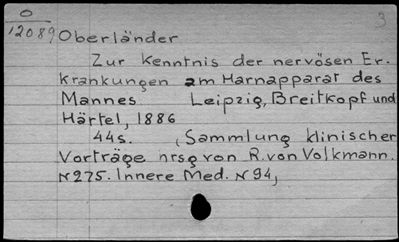 O
12089
3
Oberländer
Zur Kenntnis der nervösen Er-
krankungen am Harnapparat des
Mannes Leipzig, Breitkopf und
Härtel, 1886
44s. (Sammlung klinischer
Vorträge hrsg von R. von Volkmann.
N 275. Innere Med. N 94,